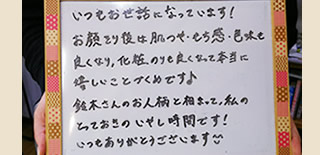 いつもお世話になっています!
お顔そり後は肌のつや・もち感・色味も
良くなり、化粧のりも良くなって本当に
嬉しいことづくめです♪
鈴木さんのお人柄と相まって、私の
とっておきのいやし時間です!
いつもありがとうございます